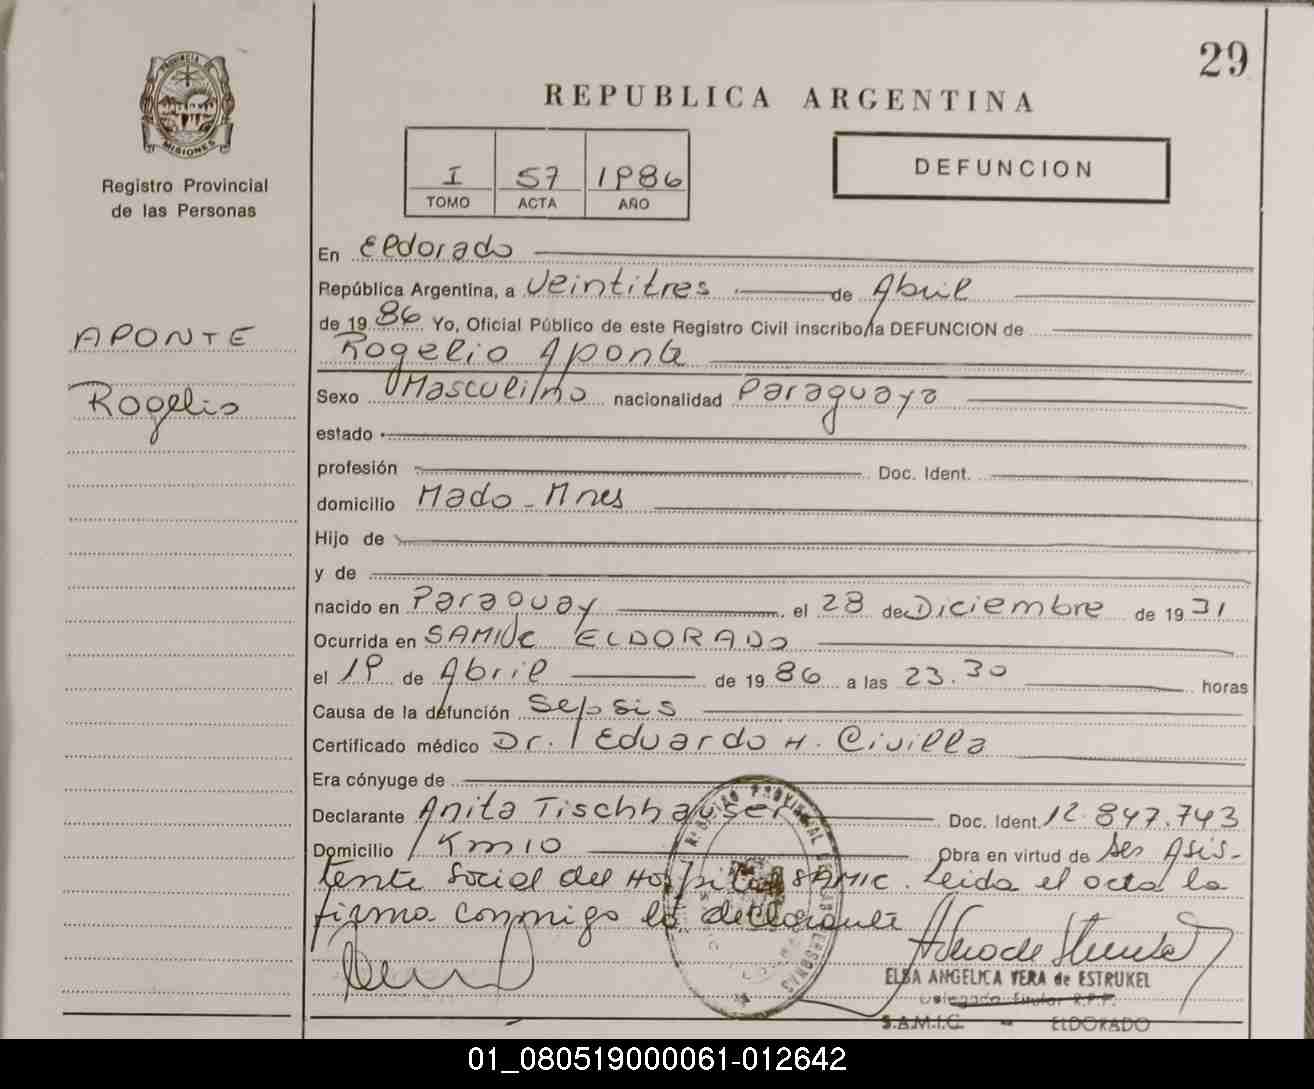 29
PROVINCIA DE
MISIONES
Registro Provincial
de las Personas
REPUBLICA ARGENTINA
I 57 1986
TOMO ACTA AÑO
DEFUNCION
APONTE
Rogelio
En Eldorado
República Argentina, a Veintitres de Abril
de 1986 Yo, Oficial Público de este Registro Civil inscribo la DEFUNCION de
Rogelio Aponte
Sexo Masculino nacionalidad Paraguaya
estado
profesión Doc. Ident.
domicilio Mado - Mnes
Hijo de
y de
nacido en Paraguay el 28 de Diciembre de 1931
Ocurrida en SAMIC ELDORADO
el 19 de Abril de 1986 a las 23.30 horas
Causa de la defunción Sepsis
Certificado médico Dr. Eduardo H. Civilla
Era cónyuge de
Declarante Anita Tischhauser Doc. Ident. 12.847.743
Domicilio Km 10 Obra en virtud de ser Asis-
tente Social del Hospital SAMIC. Leida el acta la
firma conmigo la declarante
ELBA ANGELICA VERA de ESTRUKEL
Delegado Titular R.P.P.
S.A.M.I.C. - ELDORADO
01_080519000061-012642